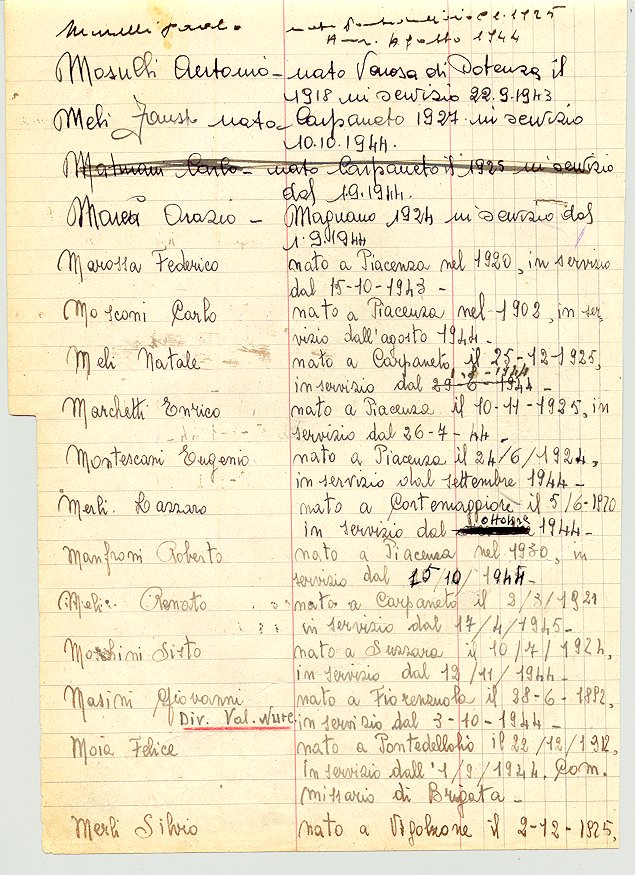 nato Pontedellolio cl. 1925
Agosto 1944
Masulli Antonio - nato Venosa di Potenza il
1918 in servizio 22.9.1943
Meli Faust nato Carpaneto 1927 in servizio
10.10.1944.
Carlo nato Carpaneto il 1925 in servizio
dal 1.9.1944.
Orazio - Magnano 1924 in servizio dal
1.9.1944
Marossa Federico nato a Piacenza nel 1920, in servizio
dal 15-10-1943 -
Mosconi Carlo nato a Piacenza nel 1902, in ser-
vizio dall'agosto 1944 -
Meli Natale nato a Carpaneto il 25-12-1925,
in servizio dal 29-6-1944 -
Marchetti Enrico nato a Piacenza il 10-11-1925, in
servizio dal 26-7-44 -
Montescani Eugenio nato a Piacenza il 24/6/1924,
in servizio dal settembre 1944 -
Merli Lazzaro nato a Cortemaggiore il 5/6-1920
ottobre
in servizio dal 1944 -
Manfroni Roberto nato a Piacenza nel 1930, in
servizio dal 15/10/1944 -
Meli Renato nato a Carpaneto il 2/3/1921
in servizio dal 17/4/1945 -
Moschini Sisto nato a Suzzara il 10/7/1924,
in servizio dal 12/11/1944 -
Masini Giovanni nato a Fiorenzuola il 28-6-1892,
Div. Val. Nure. in servizio dal 3-10-1944 -
Moia Felice nato a Pontedellolio il 22/12/1912,
in servizio dall'1/9/1944. Com-
missario di Brigata -
Merli Silvio nato a Vigolzone il 2-12-1825,